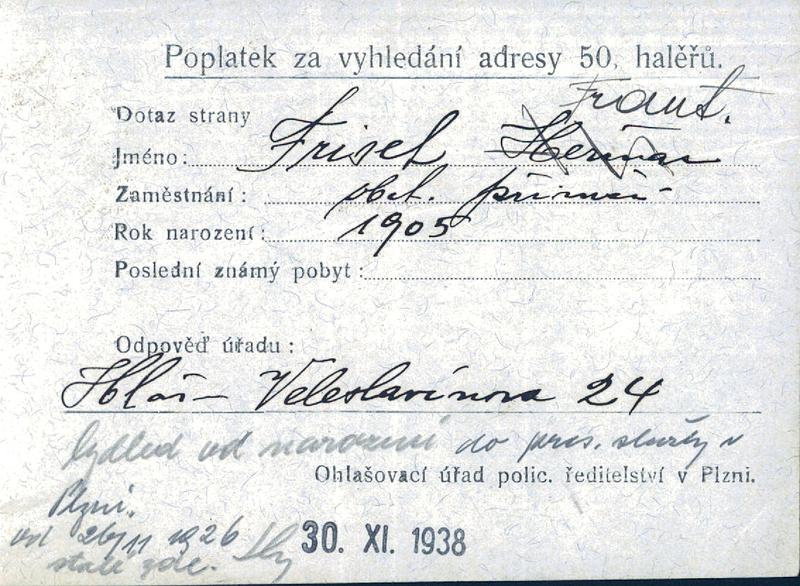 Poplatek za vyhledání adresy 50, haléřů.
Frant.
Dotaz strany
Jméno: Frisel Heřman
Zaměstnání: obch.
Rok narození: 1905
Poslední známý pobyt:
Odpověď úřadu:
Hlás- Veleslavínova 24
bydlel od narození do pres. služby v
Ohlašovací úřad polic. ředitelství v Plzni.
Plzni.
od 26/11 1926
stále zde.
30. XI. 1938